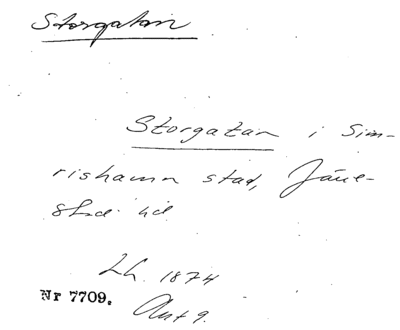 Storgatan
Storgatan i Sim-
rishamn stad, Järre-
stads hd
Lh. 1874
Nr 7709.
Ant 9.